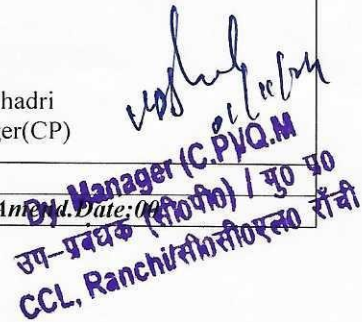 hadri
ger(CP)
Amend.Date:00
Dy Manager (C.P)/Q.M
उप-प्रबंधक (सी०पी०) / मु० प्र०
CCL, Ranchi/सी०सी०एल० राँची